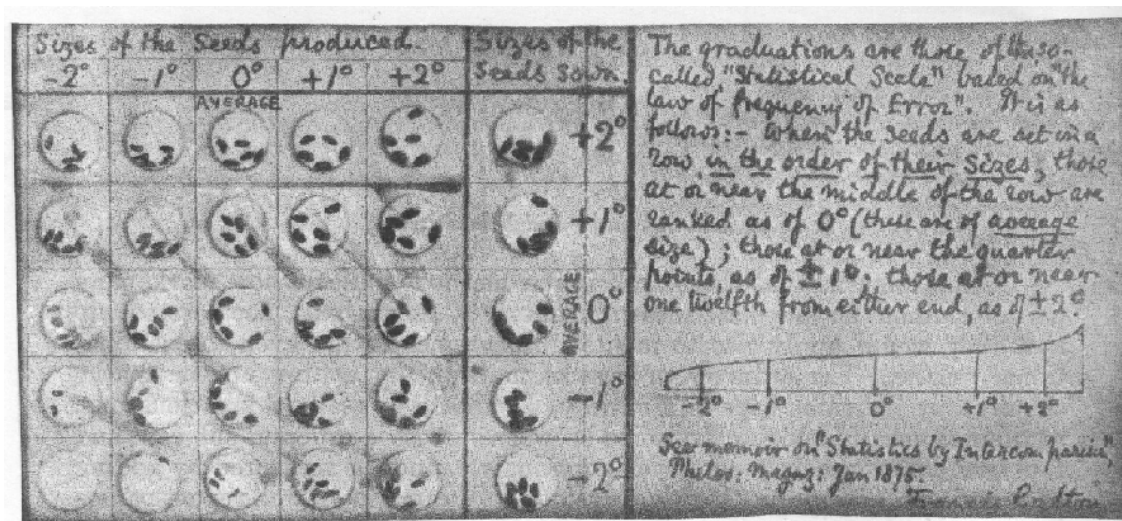 Sizes of the Seeds produced.
-2° -1° 0° +1° +2°
AVERAGE
Sizes of the
Seeds Sown.
+2°
+1°
AVERAGE 0°
-1°
-2°
The graduations are those of the so-
called "Statistical Scale" based on "the
law of frequency of Error". It is as
follows:- When the seeds are set in a
row in the order of their sizes, those
at or near the middle of the row are
ranked as of 0° (these are of average
size); those at or near the quarter
points, as of ±1°: those at or near
one twelfth from either end, as of ±2°.
-2° -1° 0° +1° +2°
See memoir on "Statistics by Intercomparison",
Philos. Magaz: Jan 1875.
Francis Galton